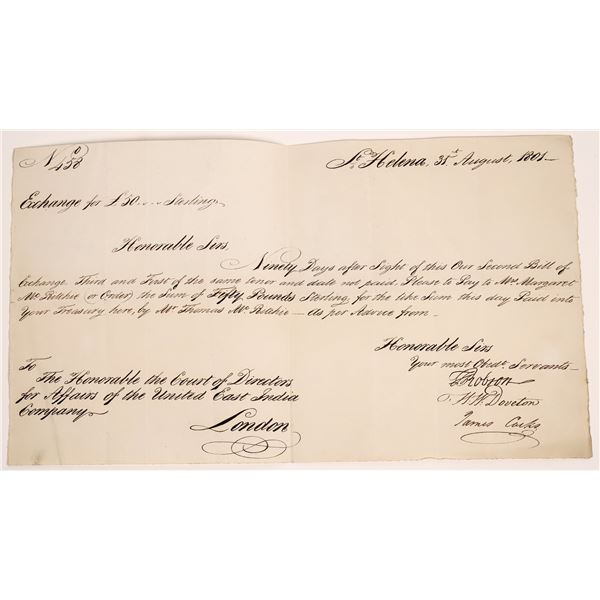 No 458
St Helena, 31st August, 1801—
Exchange for £50.--- Sterling,
Honorable Sirs,
Ninety Days after Sight of this Our Second Bill of
Exchange. Third and First of the same tenor and date not paid. Please to Pay to Mrs. Margaret
Mc Ritchie (or Order) the Sum of Fifty Pounds Sterling, for the like Sum this day Paid into
Your Treasury here, by Mr Thomas Mc Ritchie — As per Advice from—
Honorable Sirs
Your most Obedt. Servants
To
The Honorable the Court of Directors
for Affairs of the United East India
Company
London
Robson
W W Doveton
James Cocks